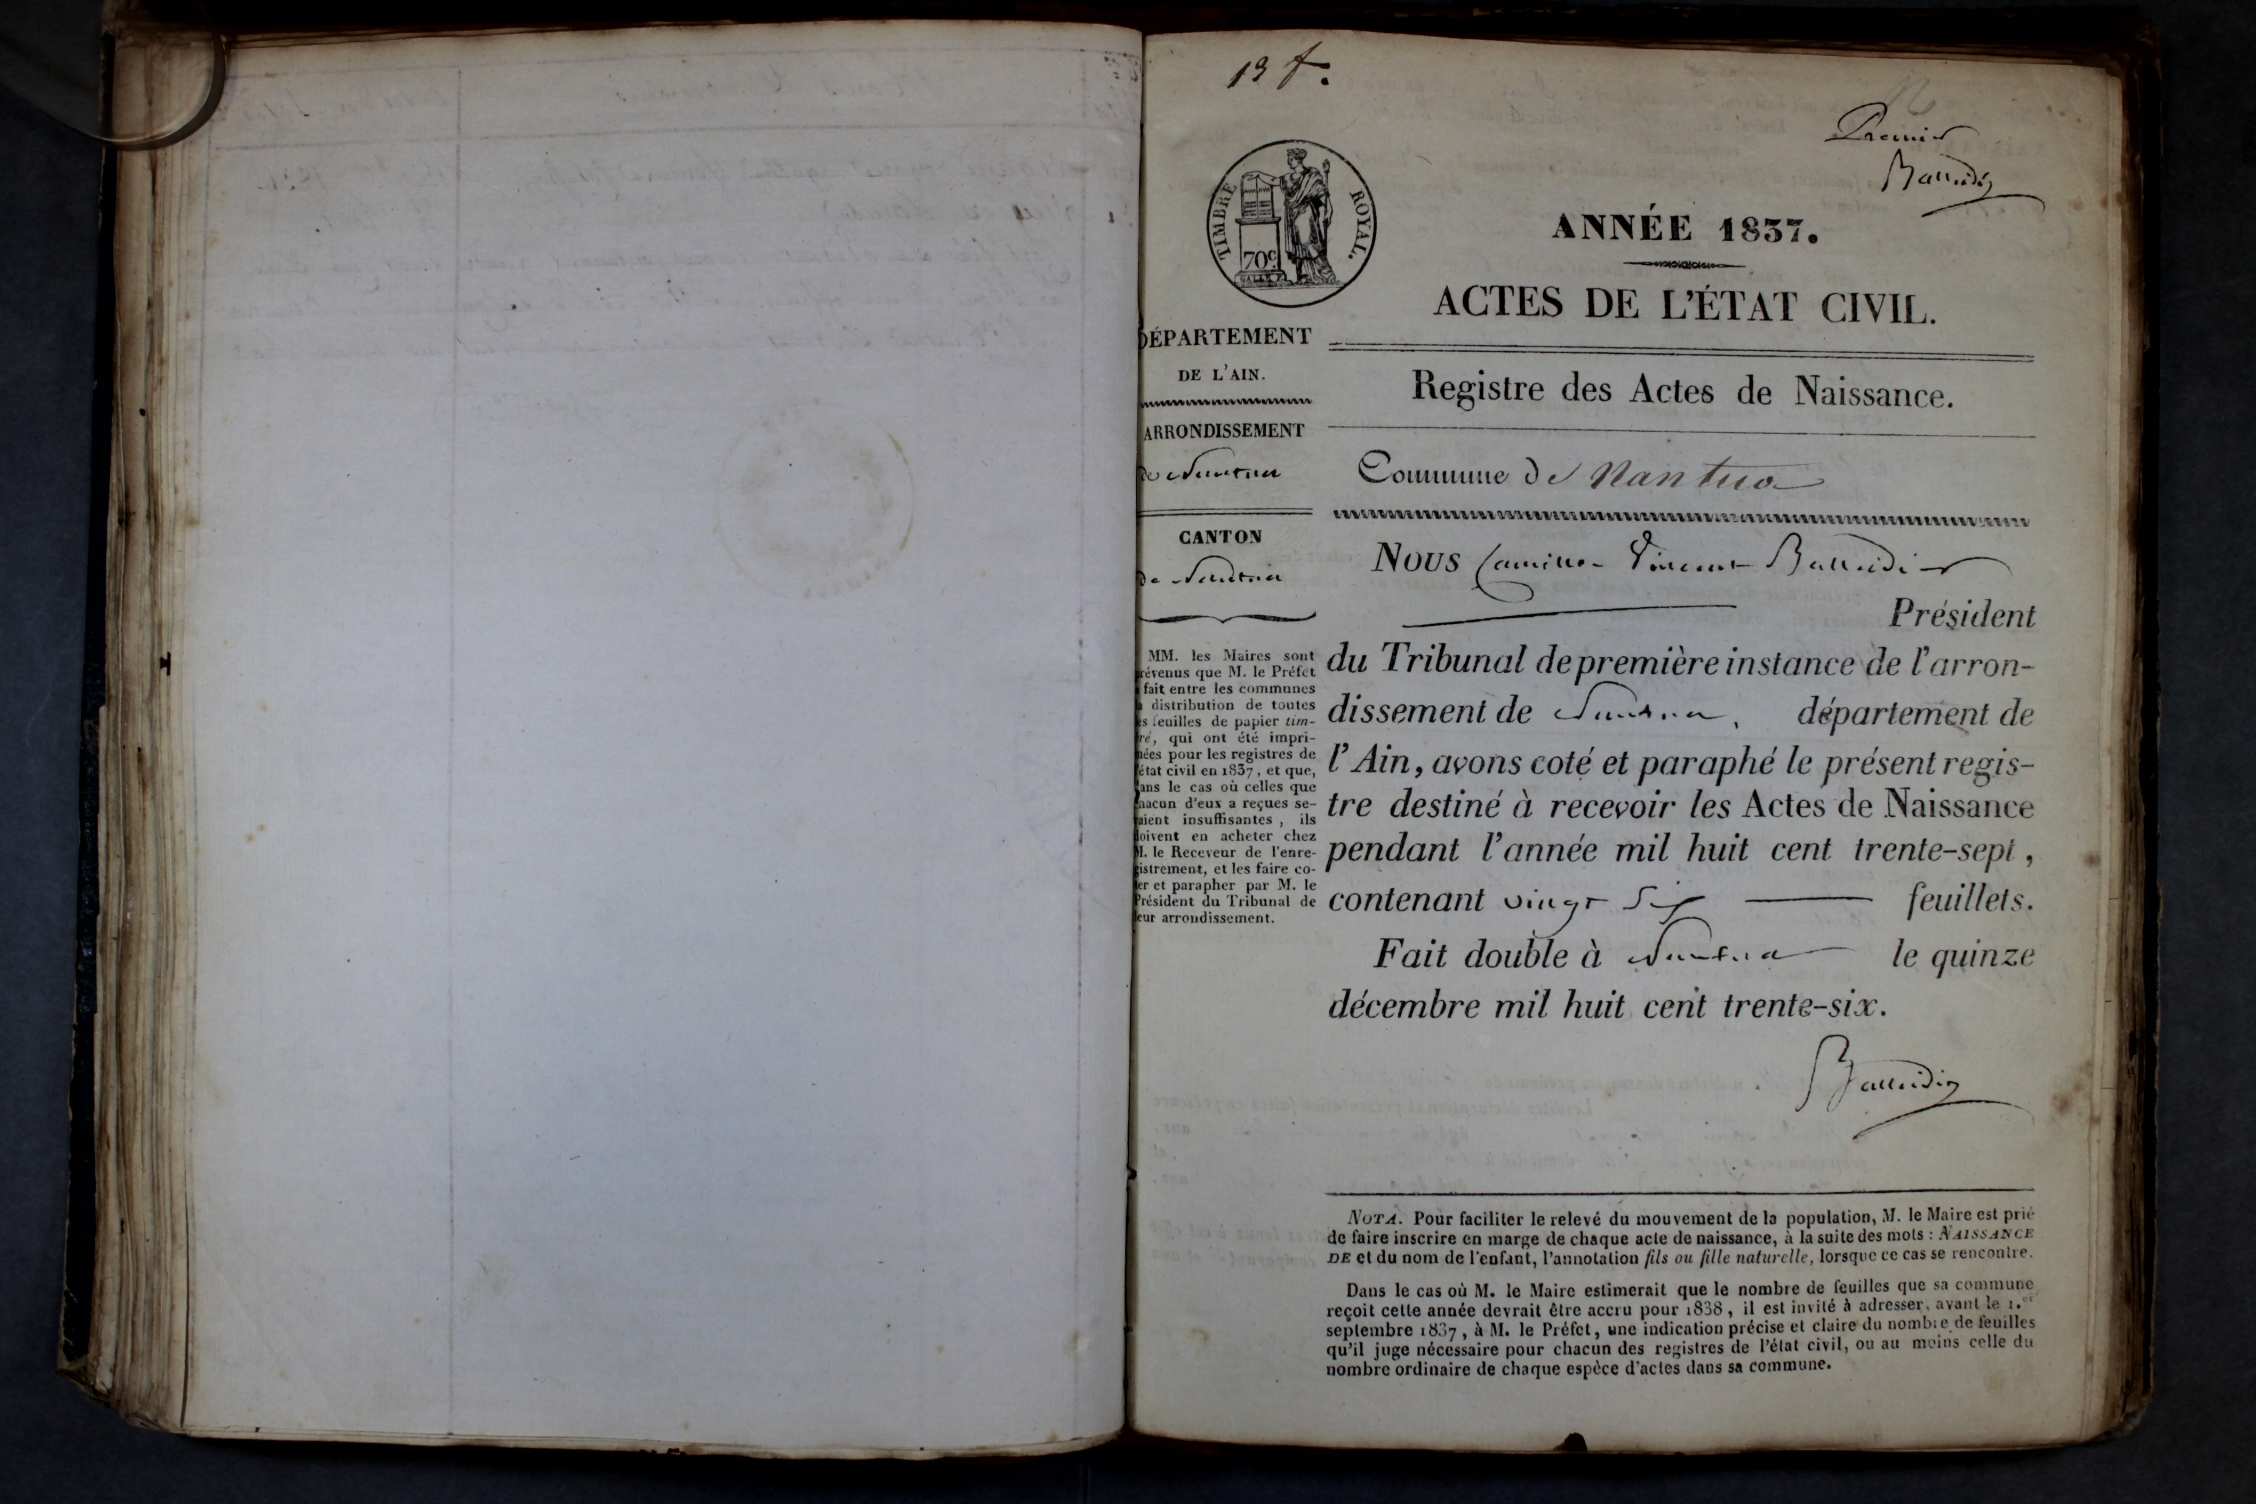 13 f.
Premier
TIMBRE ROYAL.
70c
ANNÉE 1837.
ACTES DE L'ÉTAT CIVIL.
DÉPARTEMENT
DE L'AIN.
Registre des Actes de Naissance.
ARRONDISSEMENT
de Nantua
Commune de Nantua
CANTON
de Nantua
MM. les Maires sont
prévenus que M. le Préfet
a fait entre les communes
la distribution de toutes
les feuilles de papier tim-
bré, qui ont été impri-
mées pour les registres de
l'état civil en 1837, et que,
dans le cas où celles que
chacun d'eux a reçues se-
raient insuffisantes, ils
doivent en acheter chez
M. le Receveur de l'enre-
gistrement, et les faire co-
ter et parapher par M. le
Président du Tribunal de
leur arrondissement.
NOUS Camille Vincent
Président
du Tribunal de première instance de l'arron-
dissement de Nantua, département de
l'Ain, avons coté et paraphé le présent regis-
tre destiné à recevoir les Actes de Naissance
pendant l'année mil huit cent trente-sept,
contenant vingt six feuillets.
Fait double à Nantua le quinze
décembre mil huit cent trente-six.
NOTA. Pour faciliter le relevé du mouvement de la population, M. le Maire est prié
de faire inscrire en marge de chaque acte de naissance, à la suite des mots : NAISSANCE
DE et du nom de l'enfant, l'annotation fils ou fille naturelle, lorsque ce cas se rencontre.
Dans le cas où M. le Maire estimerait que le nombre de feuilles que sa commune
reçoit cette année devrait être accru pour 1838, il est invité à adresser, avant le 1.er
septembre 1837, à M. le Préfet, une indication précise et claire du nombre de feuilles
qu'il juge nécessaire pour chacun des registres de l'état civil, ou au moins celle du
nombre ordinaire de chaque espèce d'actes dans sa commune.